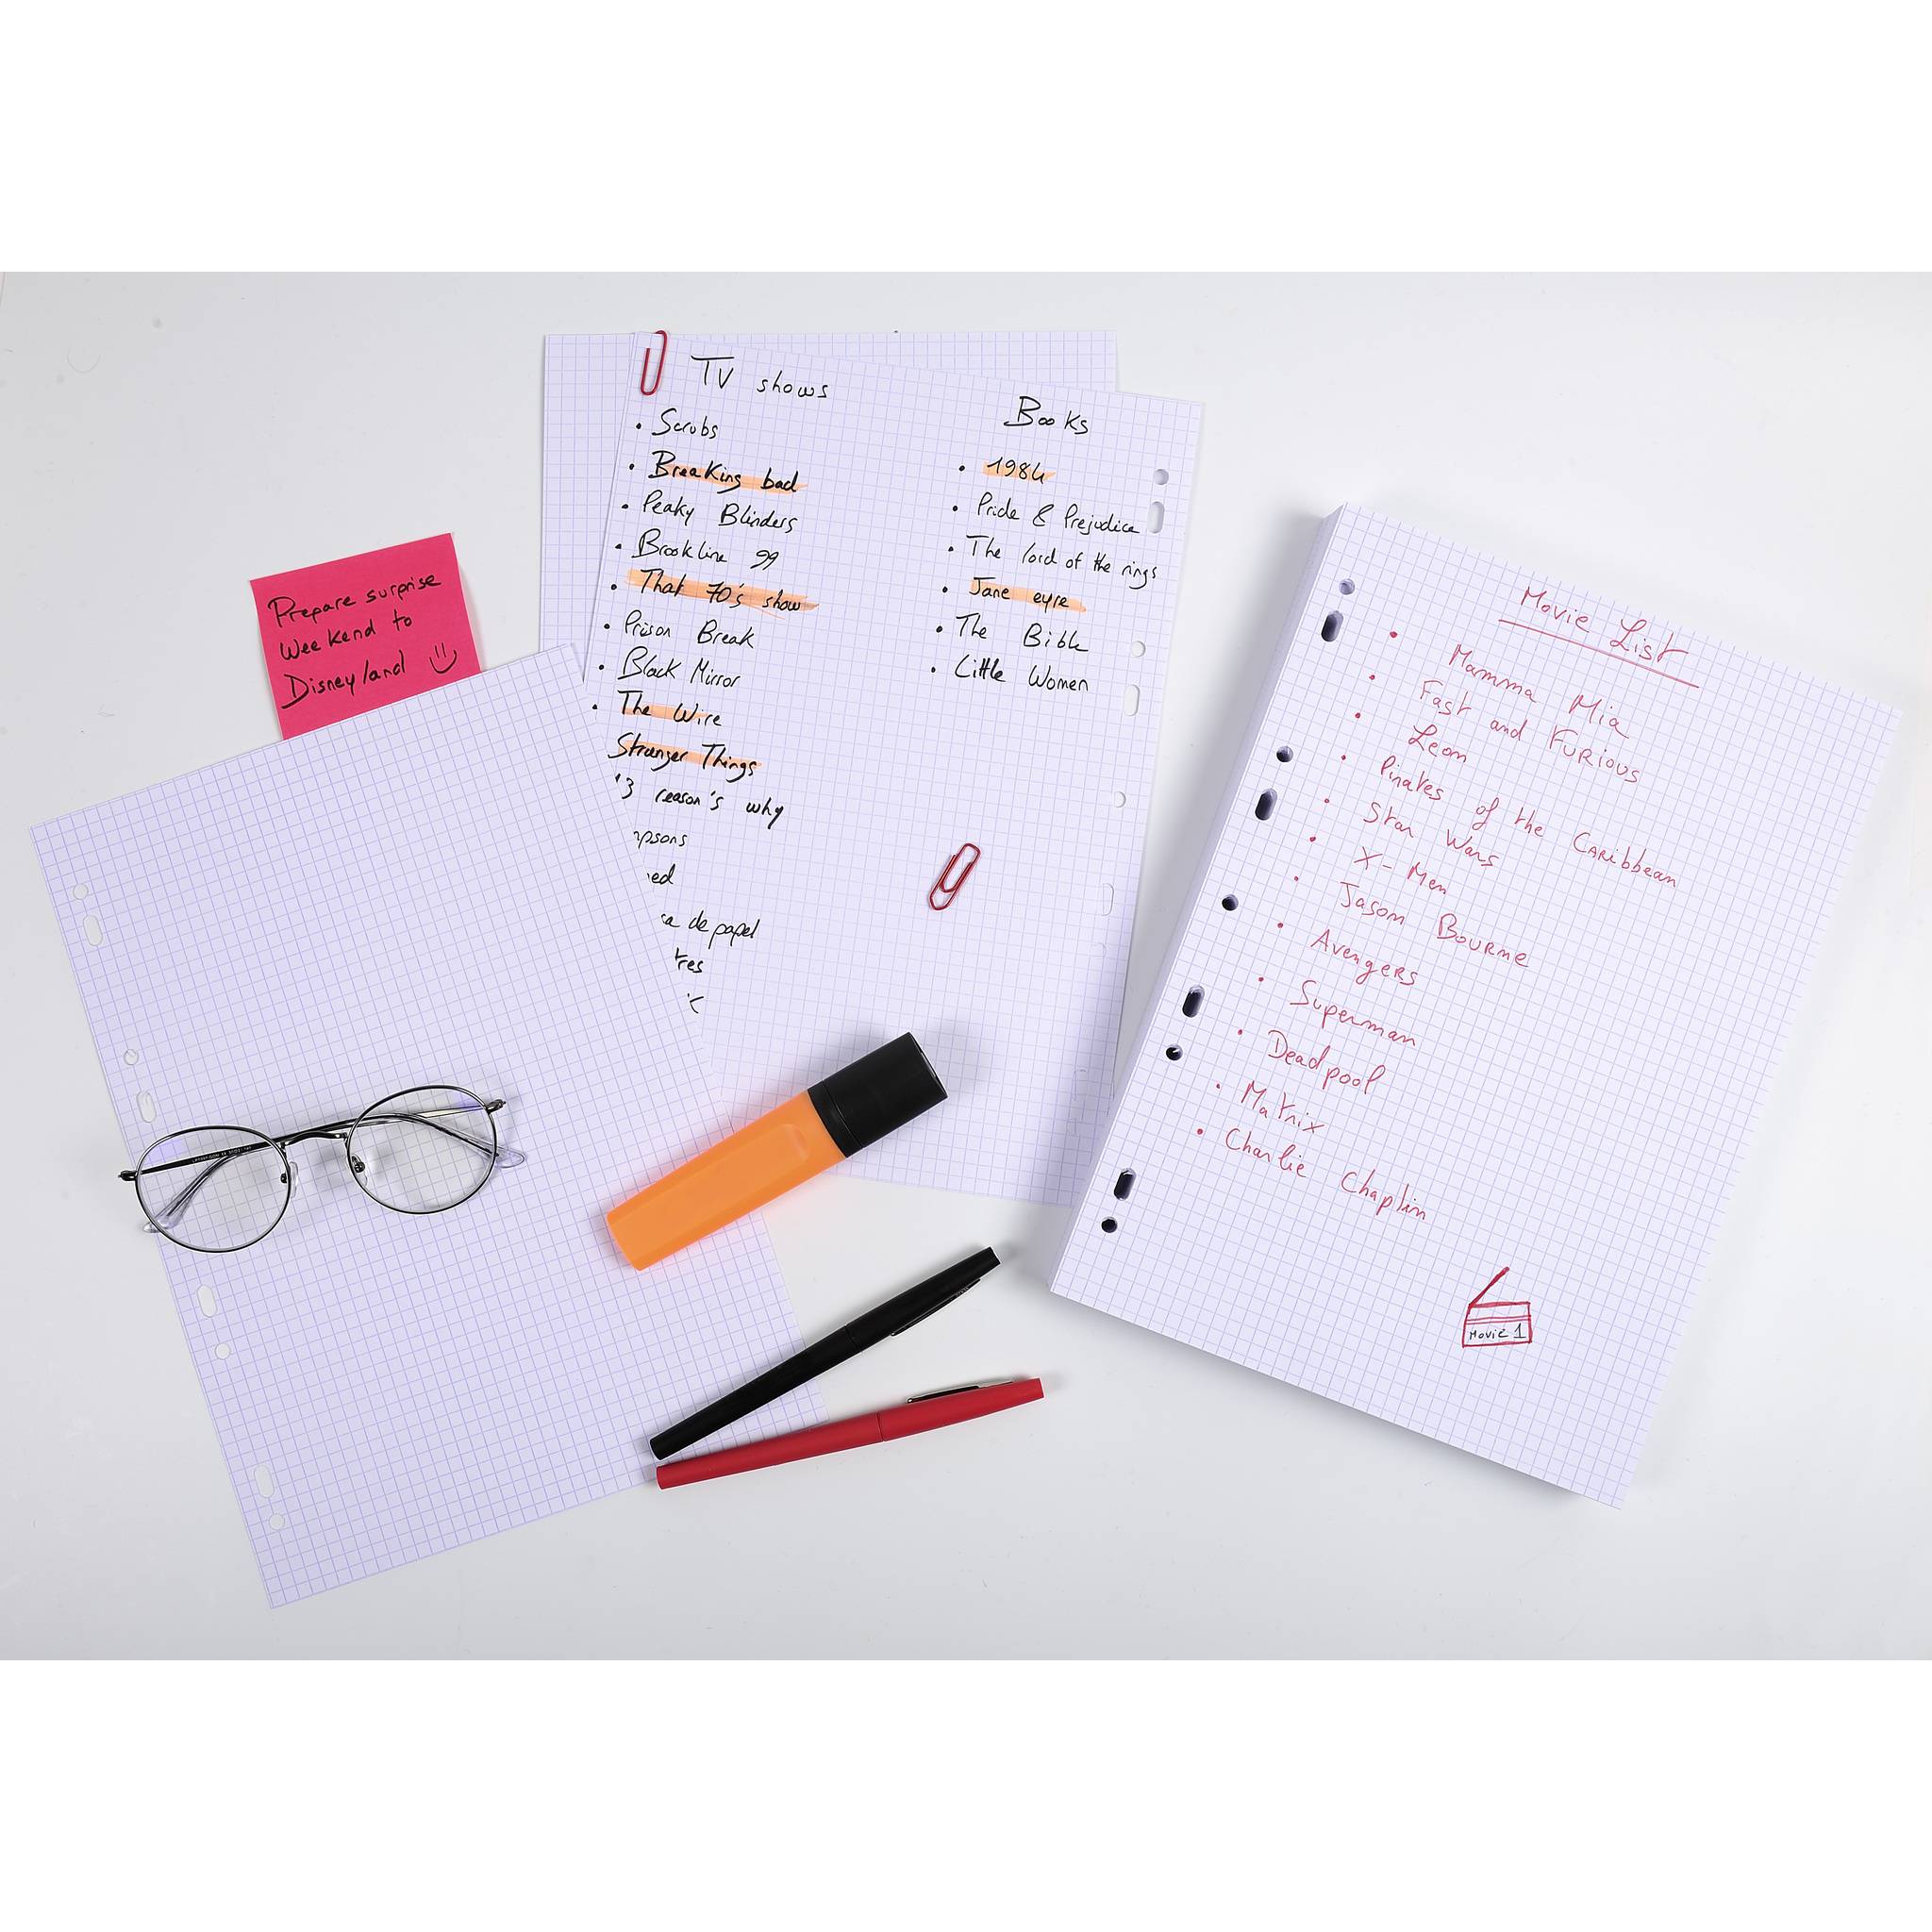 Prepare surprise
Weekend to
Disneyland
TV shows
• Scrubs
• Breaking bad
• Peaky Blinders
• Brookline 99
• That 70's show
• Prison Break
• Black Mirror
• The Wire
Stranger Things
13 reason's why
psons
ed
sa de papel
tres
Books
• 1984
• Pride & Prejudice
• The lord of the rings
• Jane eyre
• The Bible
• Little Women
Movie List
• Mamma Mia
• Fast and Furious
• Leon
• Pirates of the Caribbean
• Star Wars
• X-Men
• Jason Bourne
• Avengers
• Superman
• Deadpool
• Matrix
• Charlie Chaplin
Movie 1